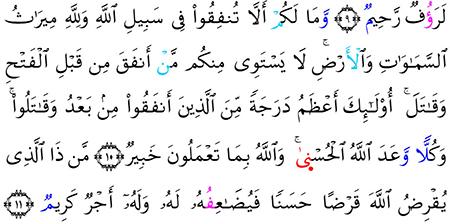 لَرَؤُفٌ رَّحِيمٌ ﴿٩﴾ وَّمَا لَكُمْ أَلَّا تُنفِقُوا۟ فِى سَبِيلِ اللَّهِ وَلِلَّهِ مِيرَاثُ
السَّمَاوَاتِ وَالْأَرْضِ ۚ لَا يَسْتَوِى مِنكُم مَّنْ أَنفَقَ مِن قَبْلِ الْفَتْحِ
وَقَاتَلَ ۚ أُولَـٰئِكَ أَعْظَمُ دَرَجَةً مِّنَ الَّذِينَ أَنفَقُوا مِنۢ بَعْدُ وَقَاتَلُوا ۚ
وَكُلًّا وَّعَدَ اللَّهُ الْحُسْنَىٰ ۚ وَاللَّهُ بِمَا تَعْمَلُونَ خَبِيرٌ ﴿١٠﴾ مَّن ذَا الَّذِى
يُقْرِضُ اللَّهَ قَرْضًا حَسَنًا فَيُضَـٰعِفُهُ لَهُۥ وَلَهُۥٓ أَجْرٌ كَرِيمٌ ﴿١١﴾